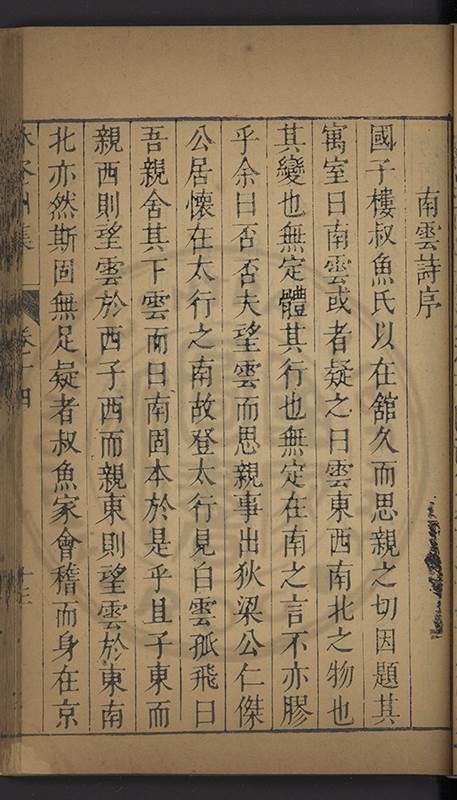 南雲詩序
國子樓叔魚氏以在舘久而思親之切因題其
寓室曰南雲或者疑之曰雲東西南北之物也
其變也無定體其行也無定在南之言不亦膠
乎余曰否否夫望雲而思親事出狄梁公仁傑
公居懷在太行之南故登太行見白雲孤飛曰
吾親舍其下雲而曰南固本於是乎且子東而
親西則望雲於西子西而親東則望雲於東南
北亦然斯固無足疑者叔魚家會稽而身在京
集 卷十四 十三